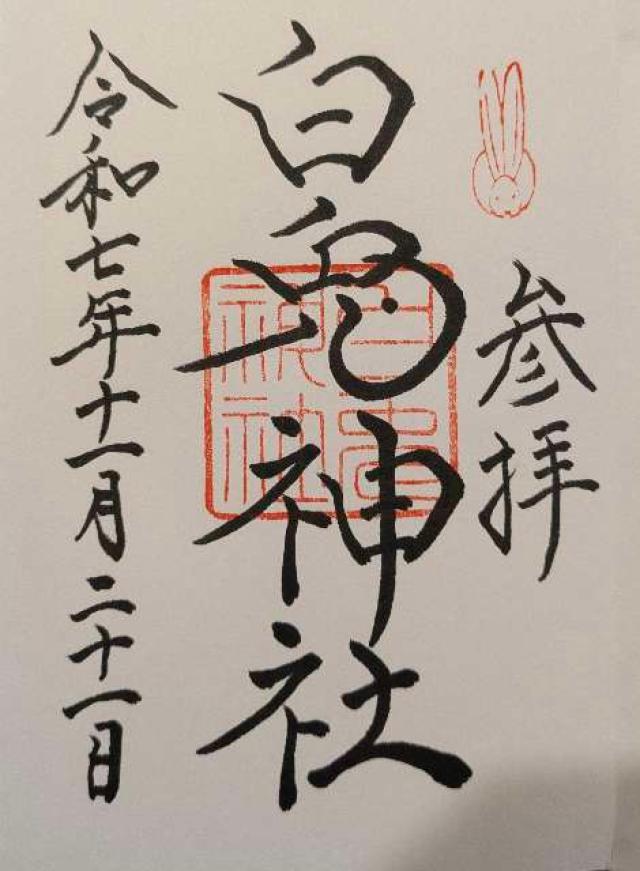 参拝
白兎神社
令和七年十一月二十一日